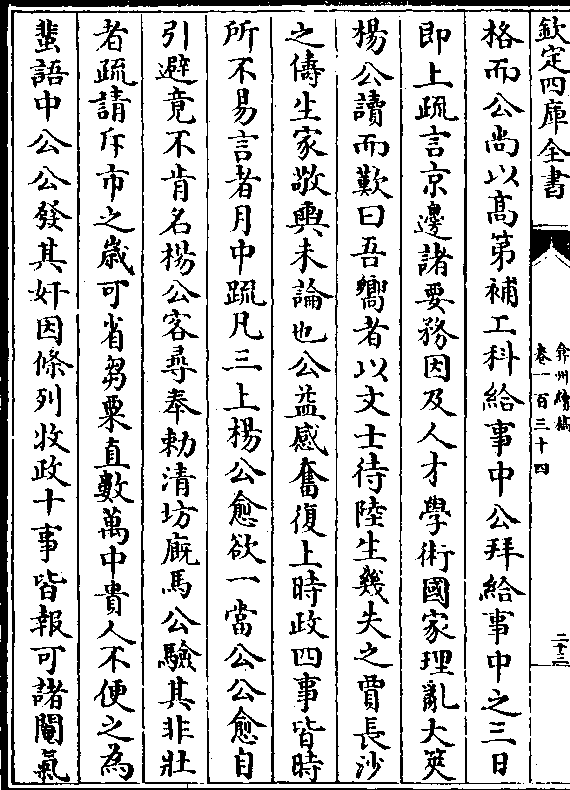 欽定四庫全書
弇州續稿
卷一百三十四
二十三
格而公尚以髙第補工科給事中公拜給事中之三日
即上疏言京邊諸要務因及人才學術國家理亂大筴
楊公讀而歎曰吾嚮者以文士待陸生幾失之賈長沙
之儔生家敬輿未論也公益感奮復上時政四事皆時
所不易言者月中疏凡三上楊公愈欲一當公公愈自
引避竟不肯名楊公客尋奉勅清坊廐馬公驗其非壯
者疏請斥市之歲可省芻粟直數萬中貴人不便之為
蜚語中公公發其奸因條列收政十事皆報可諸閹氣